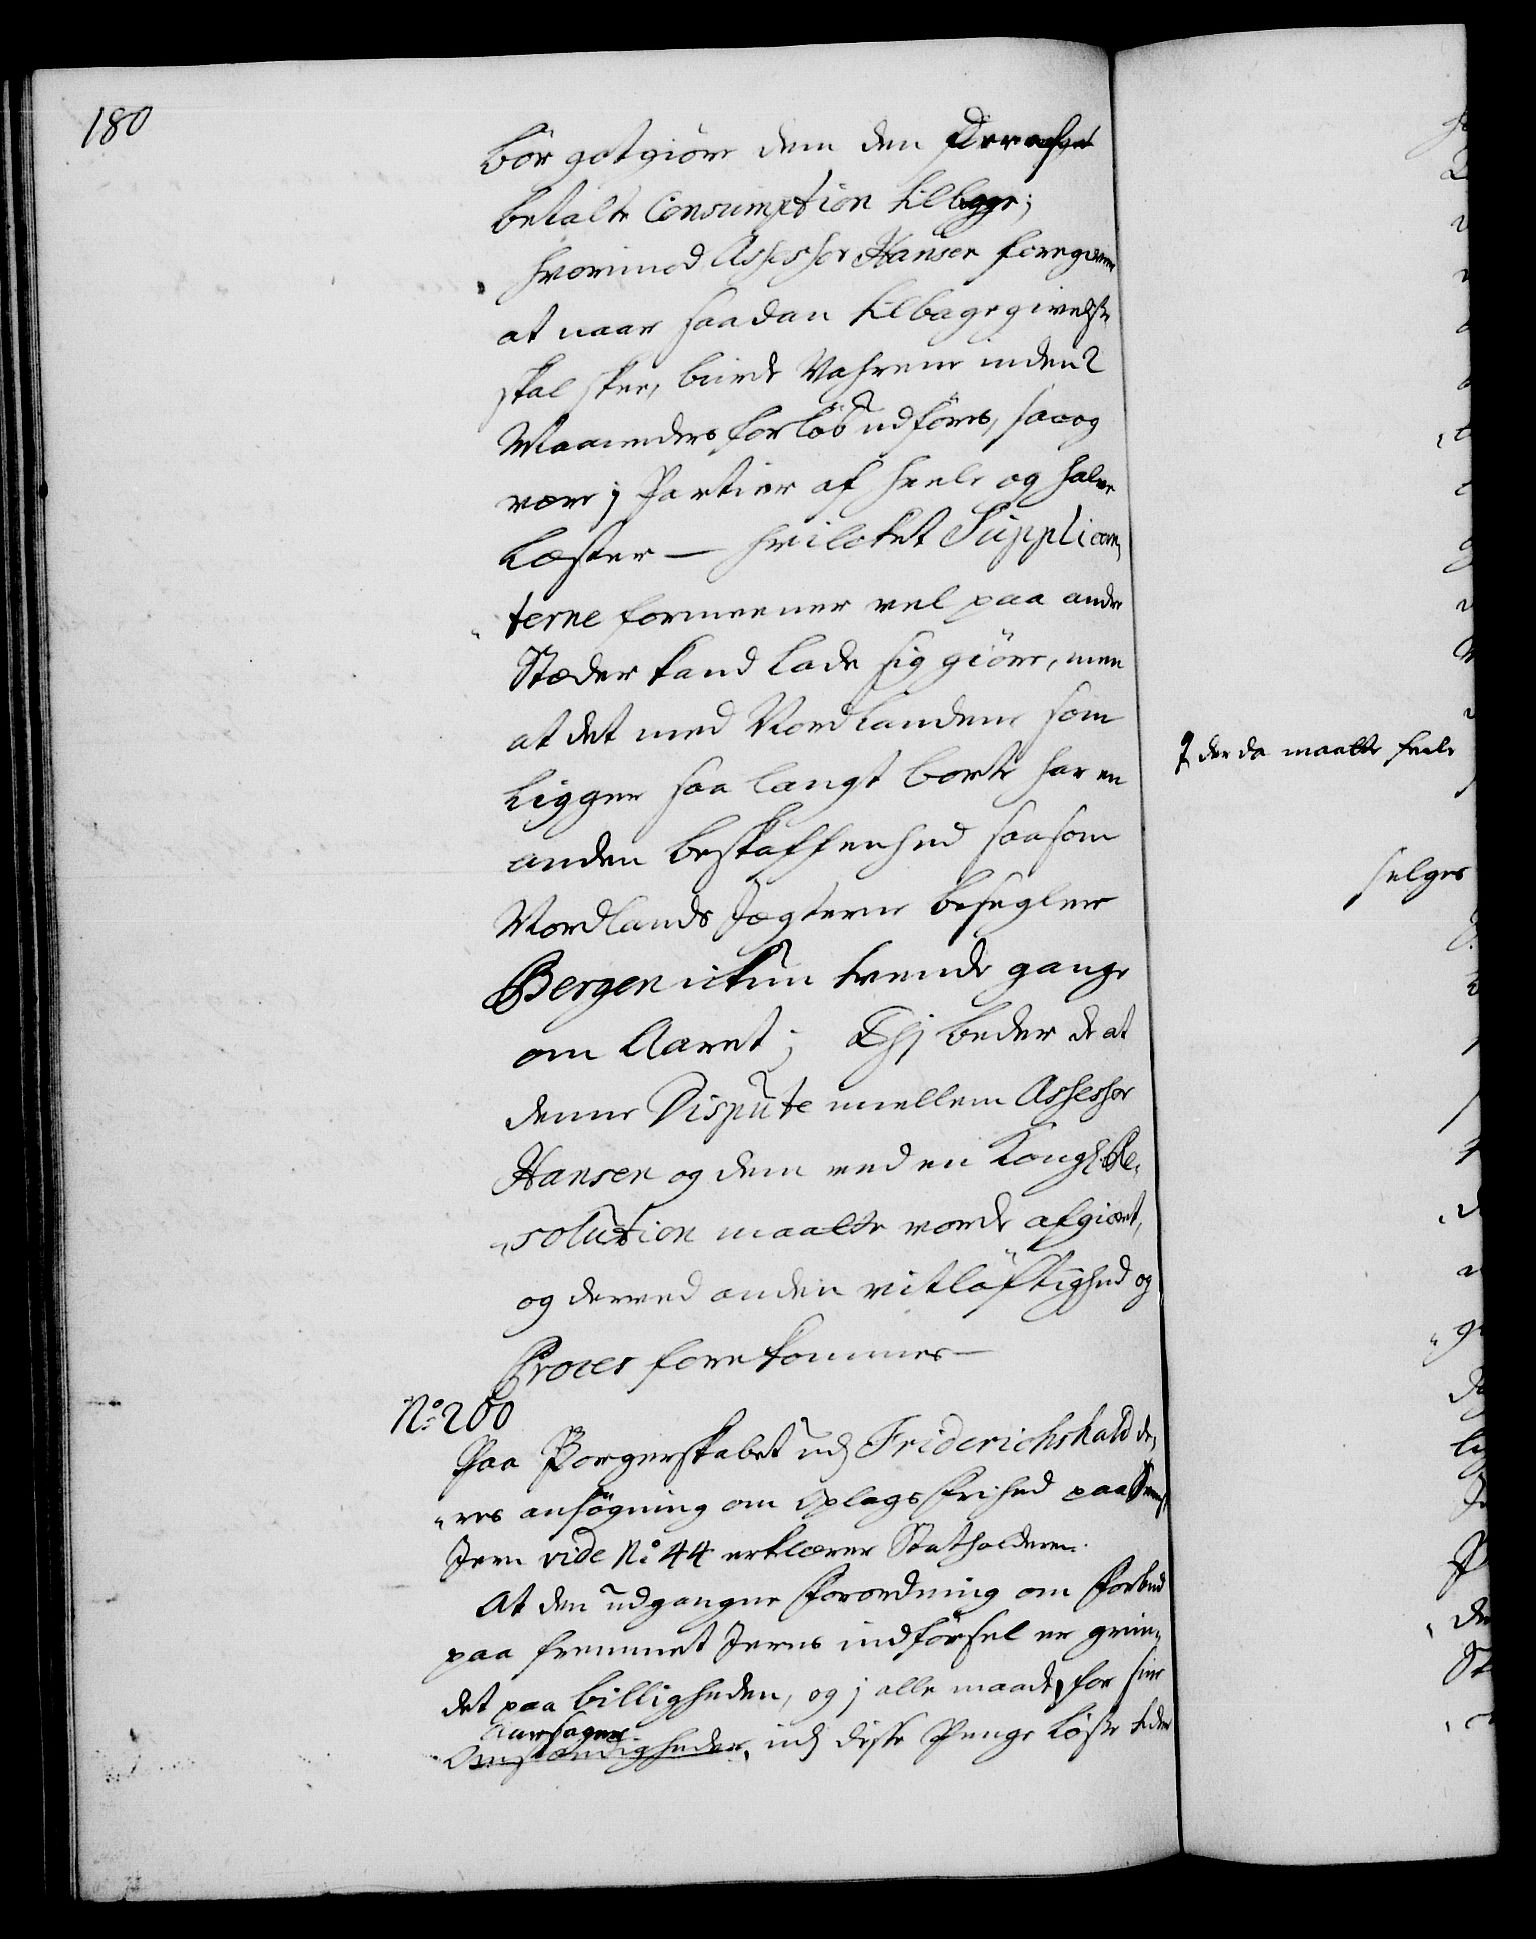 180
bör gotgiöre dem den derafhed
betalte Consumption tilbage;
hvorimod Assessor Hansen foregiver
at naar saadan tilbagegivelse
skal skee, burde Vahrene inden 2
Maaneders forløb udföres, saa og
være j Partier af heele og halve
Læster — hvilcket Supplican¬
terne formeener vel paa andre
Stæder kand lade sig giöre, men
at det med Nordlandene som
ligger saa langt borte har en
anden beskaffenhed saasom
Nordlands Jægterne besegler
Bergen ickun tvende gange
om Aaret; Thj beder de at
denne Dispute imellem Assessor
Hansen og dem ved en Kongl: Re¬
solution maatte vorde afgiort,
og derved anden vitløftighed og
Proces forekommes —
No: 200
Paa Borgerskabet udj Friderichshald de¬
res ansögning om Oplags frihed paa Svensk
Jern vide No: 44 erklærer Statholderen.
At den udgangne Forordning om Forbud
paa fremmet Jerns indförsel er grun¬
det paa billigheden, og j alle maader for
aarsager
Omstændigheder, udj disse Penge löse tider
der da maatte heele
selges